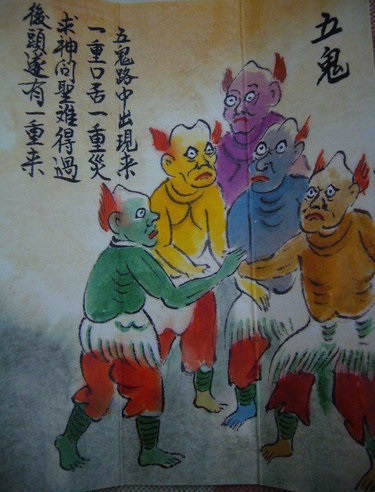 五鬼
五鬼路中出現来
一重口舌一重災
求神问聖難得過
後頭遂有一重来